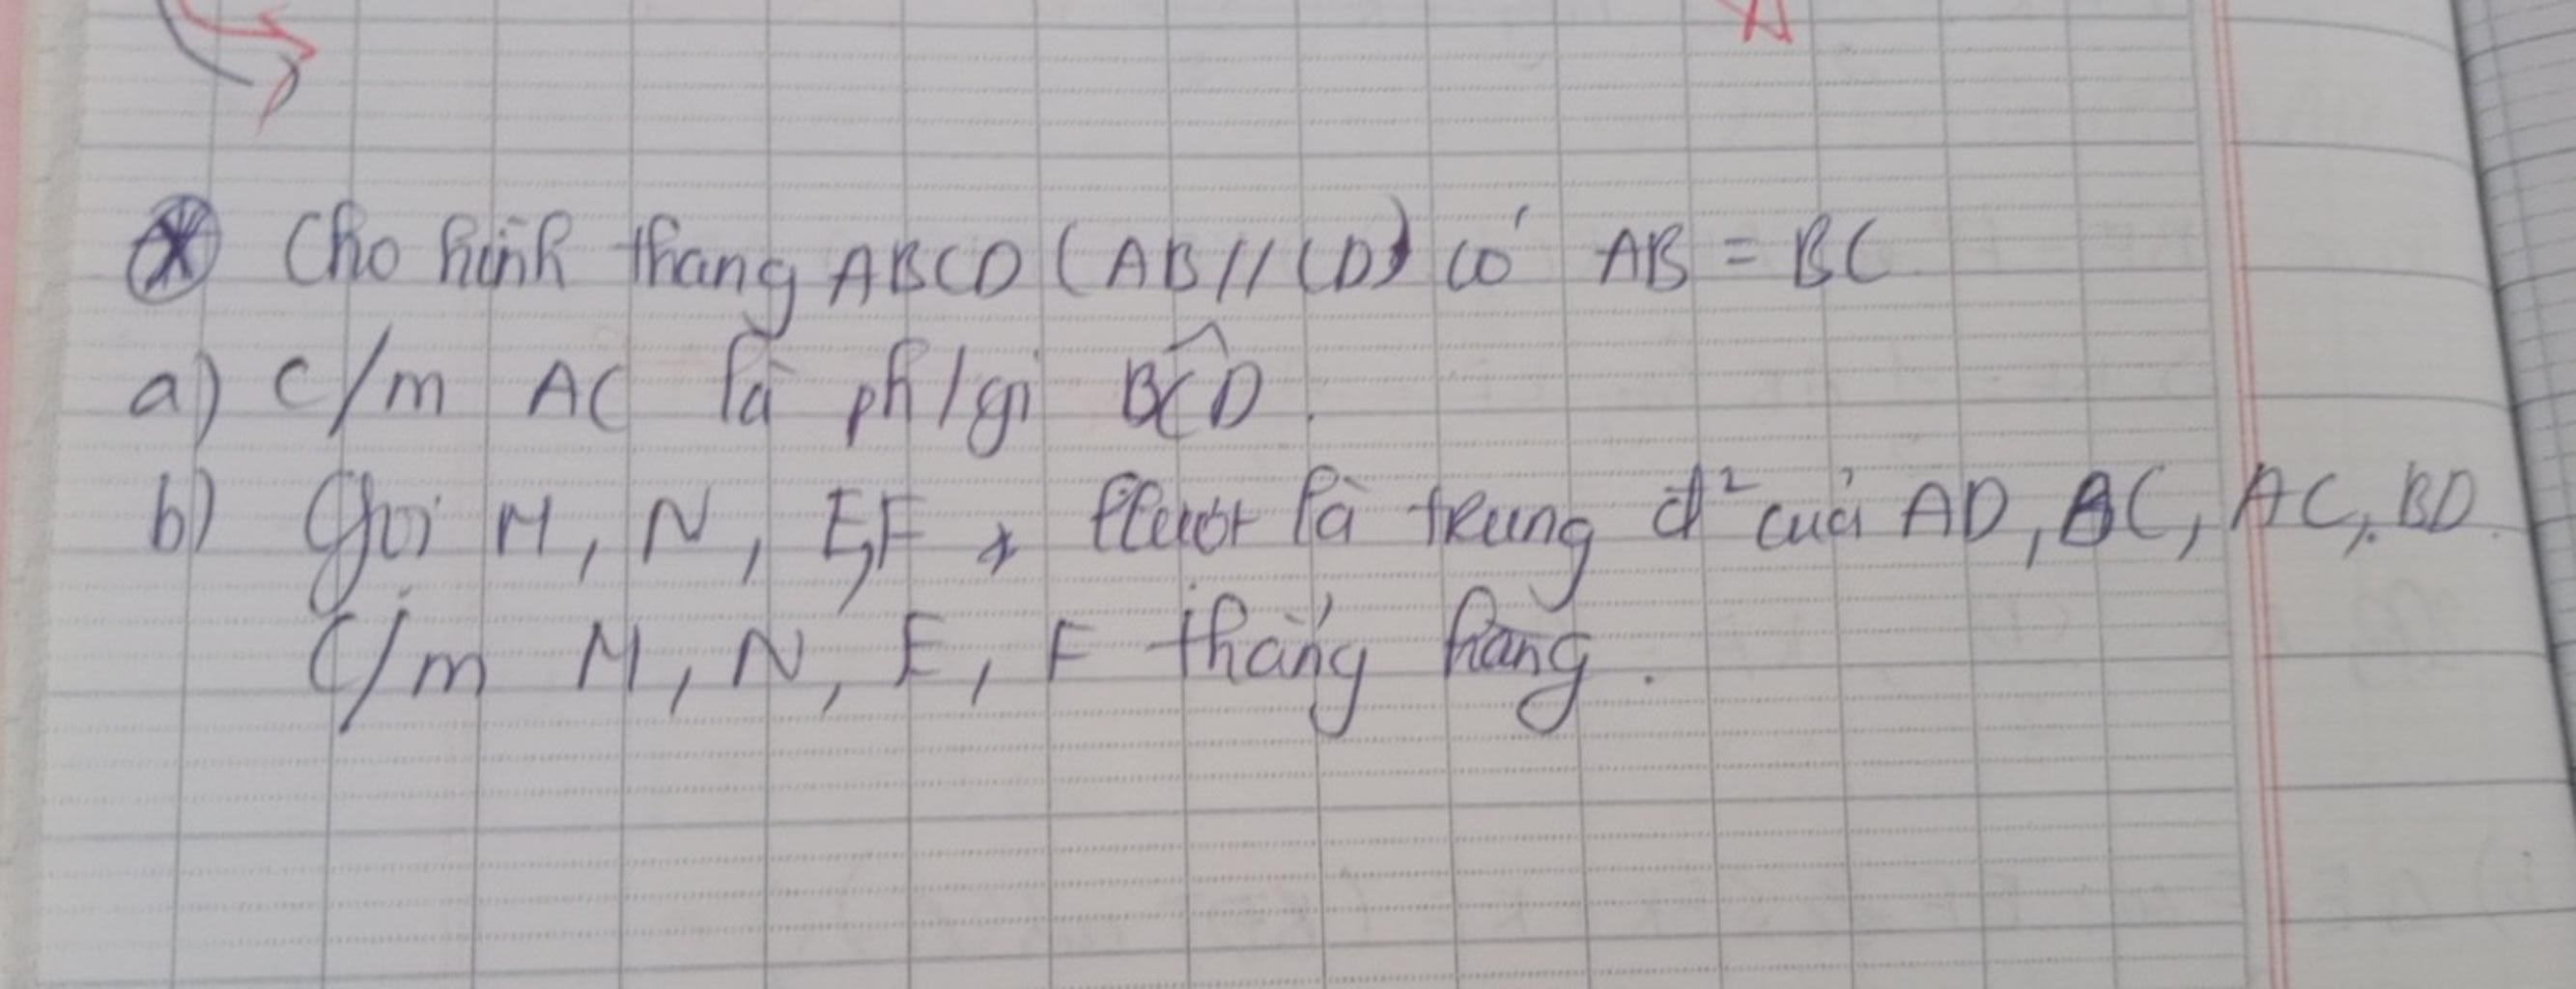 Cho hình thang ABCD (AB // CD) có AB = BC
a) C/m AC là ph/gi BĈD.
b) Gọi M, N, E, F lần lượt là trung đ² của AD, BC, AC, BD.
C/m M, N, E, F thẳng hàng.